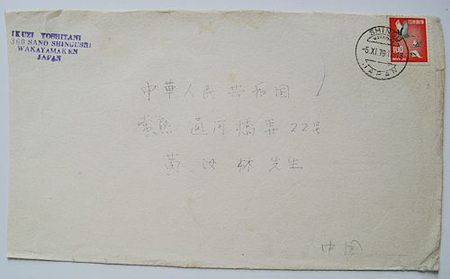 IKUZI YOSHITANI
360 SANO SHINGUSHI
WAKAYAMAKEN
JAPAN
SHINGU
-6.XI.79
JAPAN
100
中華人民共和国
通河橋弄22号
黄汝林先生
中国